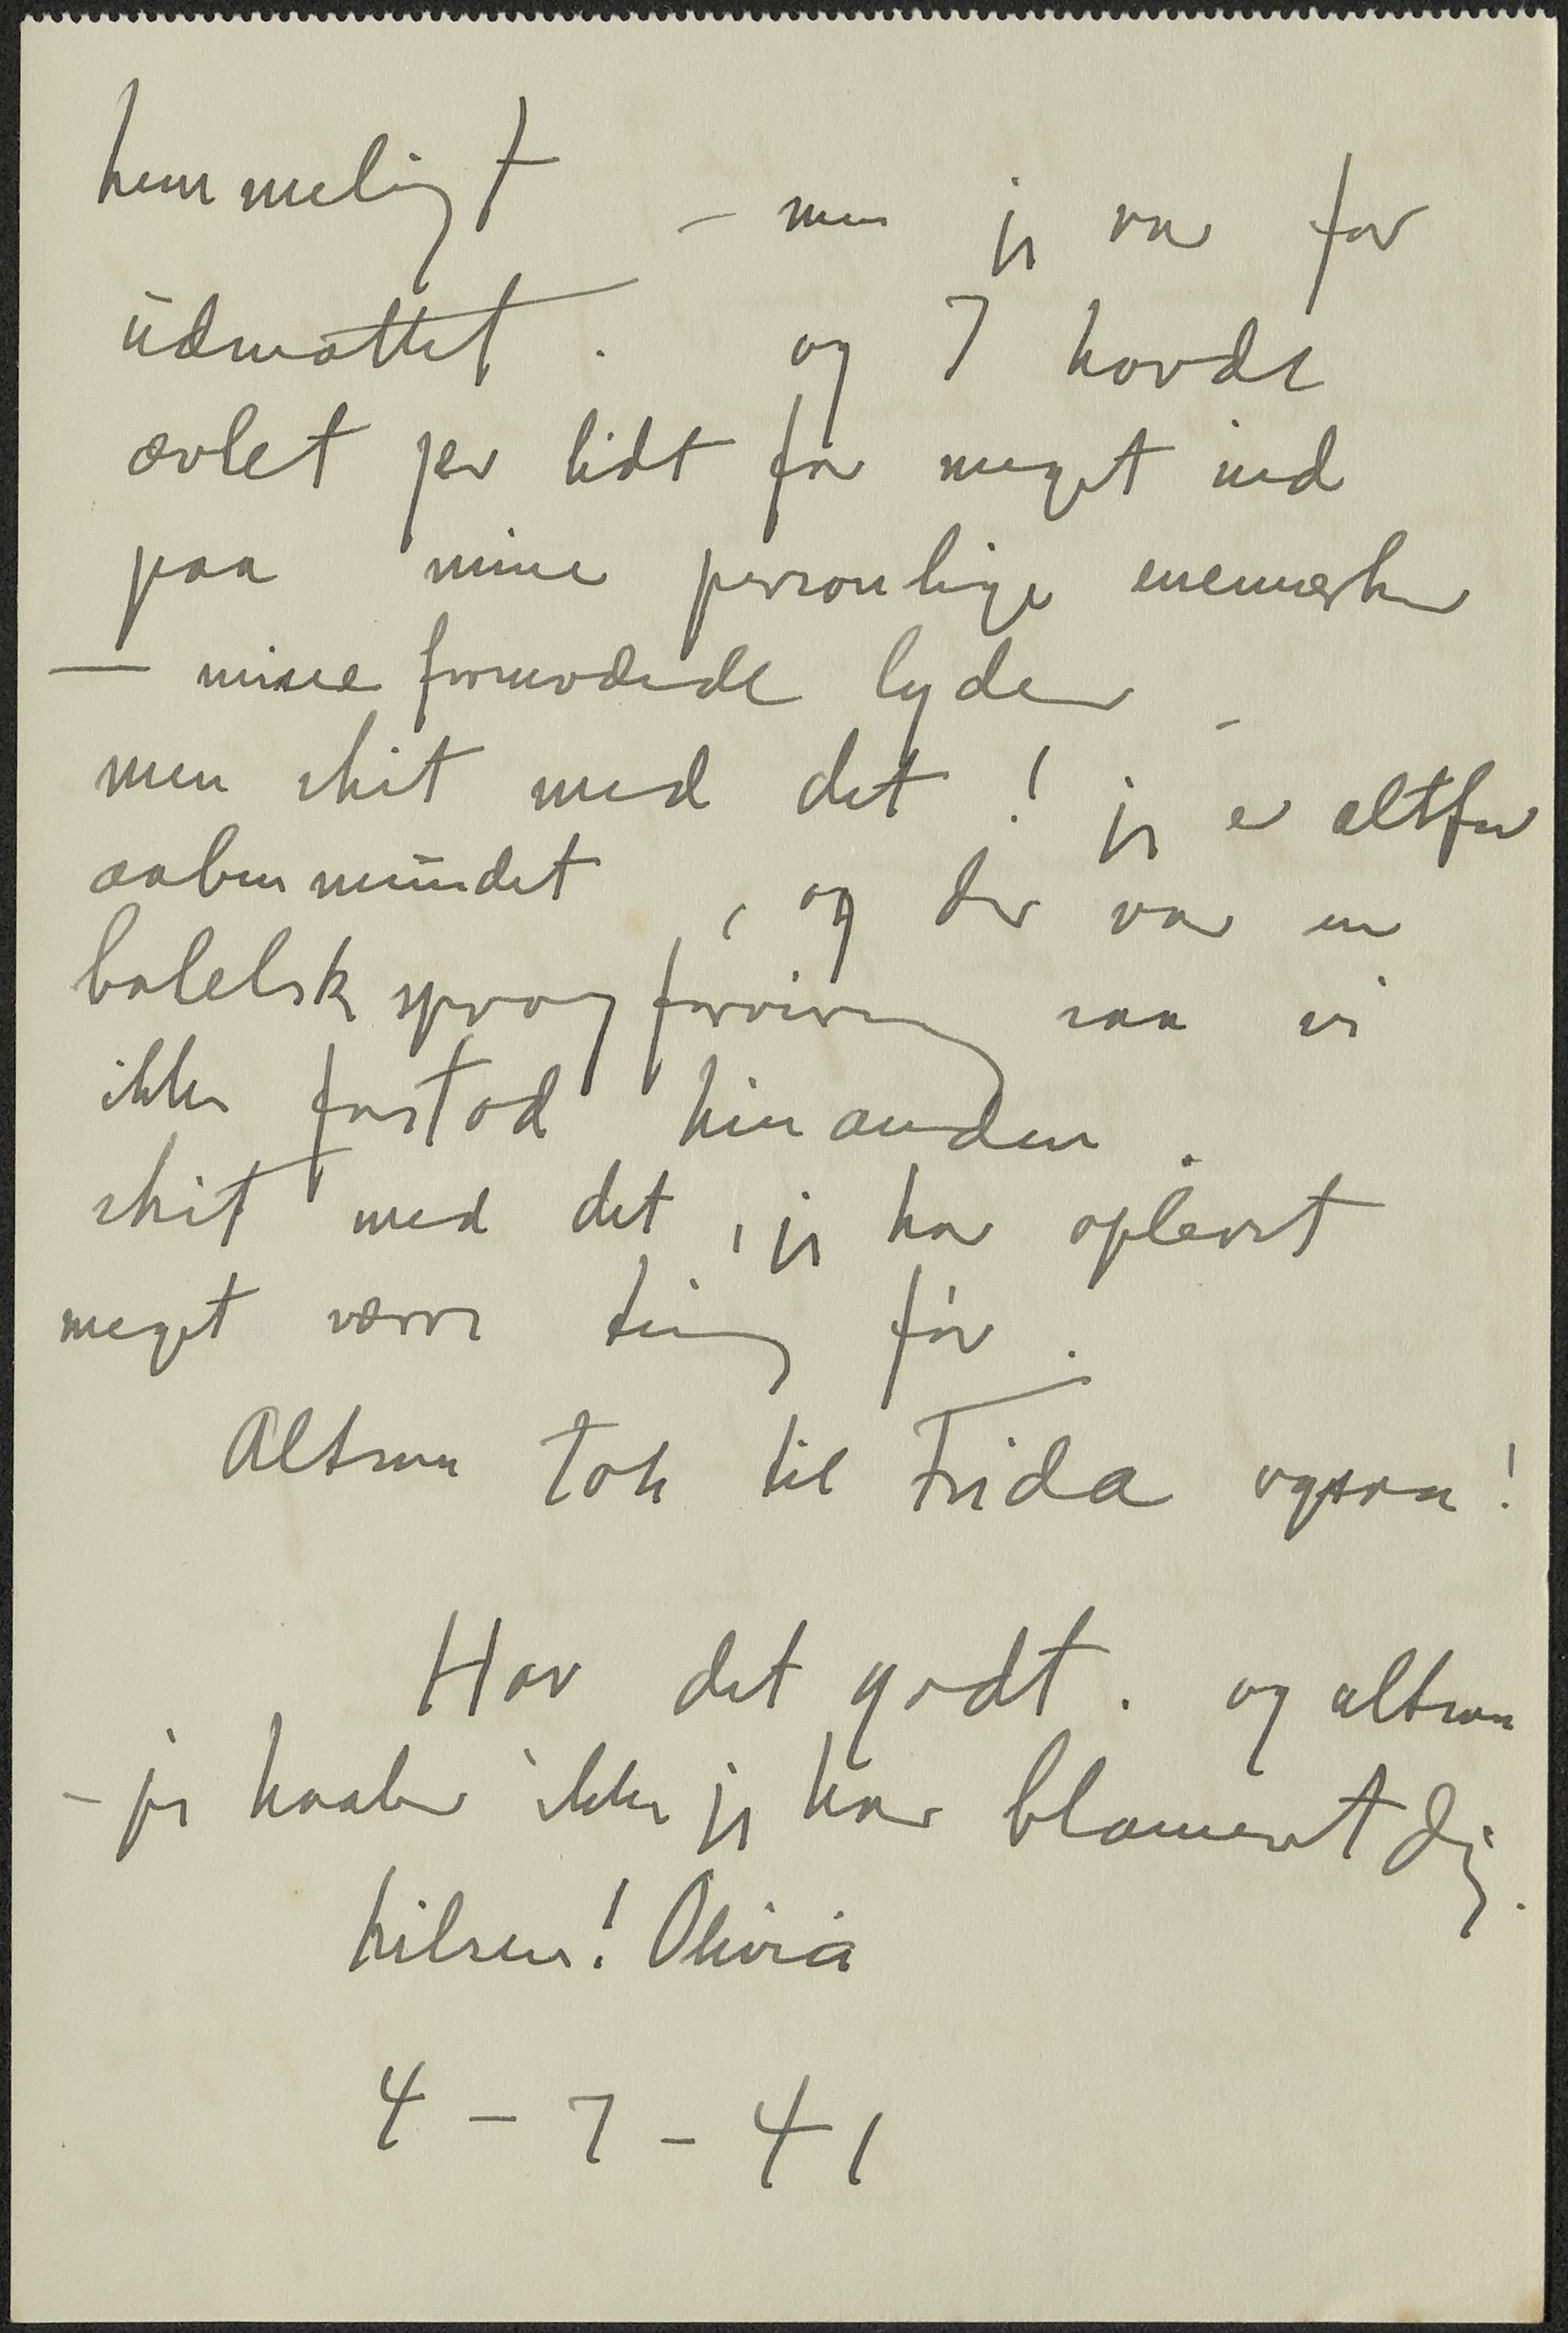 hemmeligt – men jeg var for
udmattet. og I havde
ævlet jer lidt for meget ind
paa mine personlige enemærker
– mine formodede lyder –
men skit med det! jeg er altfor
aabenmundet, og der var en
babelsk sprogforvirring saa vi
ikke forstod hinanden.
skit med det, jeg har oplevet
meget værre ting før.
Altsaa tak til Frida ogsaa!
Hav det godt. og altsaa
– jeg haaber ikke jeg har blameret dig.
hilsen! Olivia
4 – 7 – 41